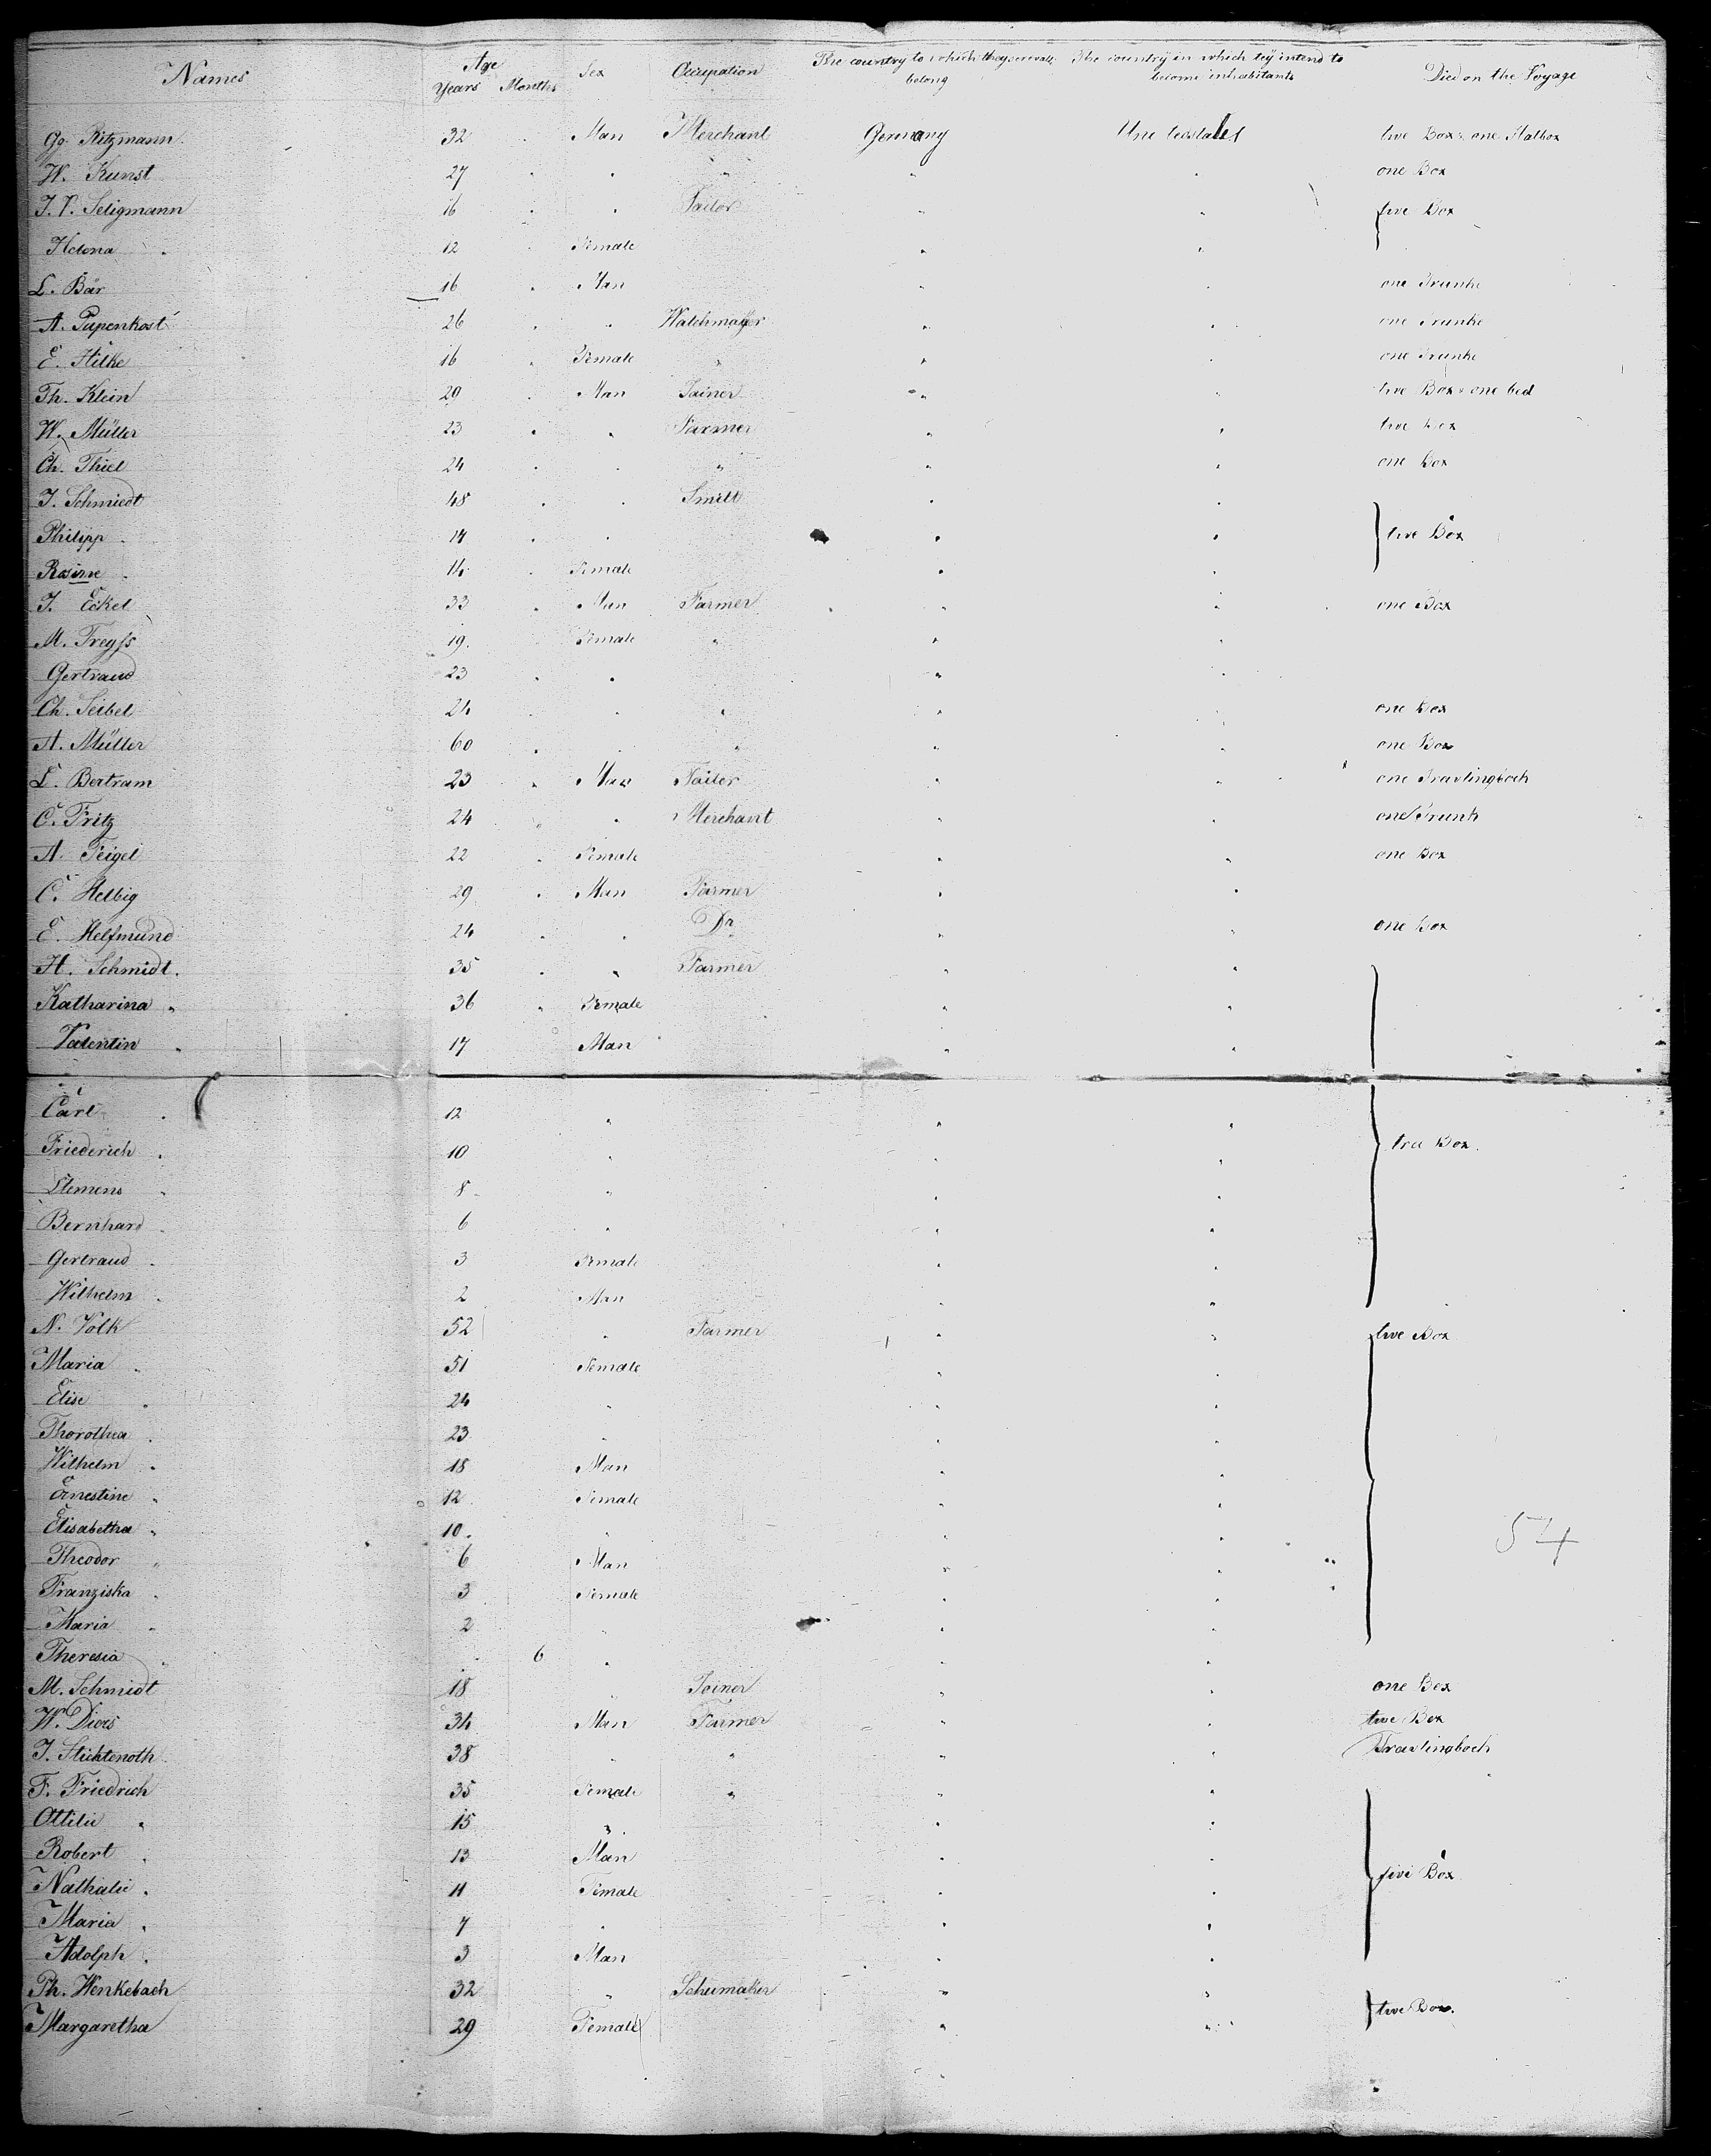 Names Age Years Months Sex Occupation The country to which they severally belong The country in which tey intend to become inhabitants Died on the Voyage
Go. Ritzmann 32 Man Merchant Germany Une tedstates twe Box one Halbox
W. Kunst 27 " " " " one Box
J. V. Seligmann 16 " Tailor " " twe Box
Helena " 12 Female " "
L. Bär 16 Man " " one Trunke
A. Papenkost 26 " Watchmaker " " one Trunke
E. Hilke 16 Female " " " one Trunke
Th. Klein 29 Man Joiner " " twe Box one bed
W. Müller 23 " Farmer " " twe Box
Ch. Thiel 24 " " " " one Box
J. Schmiedt 48 " Smitt " "
Philipp " 14 " " " twe Box
Rosine " 14 Female " "
J. Eckel 33 Man Farmer " " one Box
M. Treyfs 19 Female " " "
Gertraud 23 " " "
Ch. Seibel 24 " " " " one Box
A. Müller 60 " " " " one Box
L. Bertram 23 Man Tailer " " one Travlingboch
C. Fritz 24 " Merchant " " one Trunk
A. Feigel 22 Female " " one Box
C. Helbig 29 Man Farmer " "
E. Helfmund 24 " Dr " " one Box
H. Schmidt 35 " Farmer " "
Katharina " 36 Female " "
Valentin " 17 Man " "
Carl " 12 " " "
Friederich " 10 " " " tree Box
Clemens " 8 " " "
Bernhard " 6 " " "
Gertraud " 3 Female " "
Wilhelm " 2 Man " "
N. Volk 52 " Farmer " " twe Box
Maria " 51 Female " "
Elise " 24 " " "
Thorothea " 23 " " "
Wilhelm " 18 Man " "
Ernestine " 12 Female " "
Elisabetha " 10 " " "
54
Theodor " 6 Man " "
Franziska " 3 Female " "
Maria " 2 " " "
Theresia " 6 " " "
M. Schmidt 18 " Joiner " " one Box
W. Diers 34 Man Farmer " " twe Box
J. Stichtenoth 38 " " " " Travlingboch
F. Friedrich 35 Female " " "
Ottilie " 15 " " "
Robert " 13 Man " "
Nathalie " 11 Female " " five Box
Maria " 7 " " "
Adolph " 3 Man " "
Ph. Wenkebach 32 " Schumaker " "
Margaretha 29 Female " " twe Box